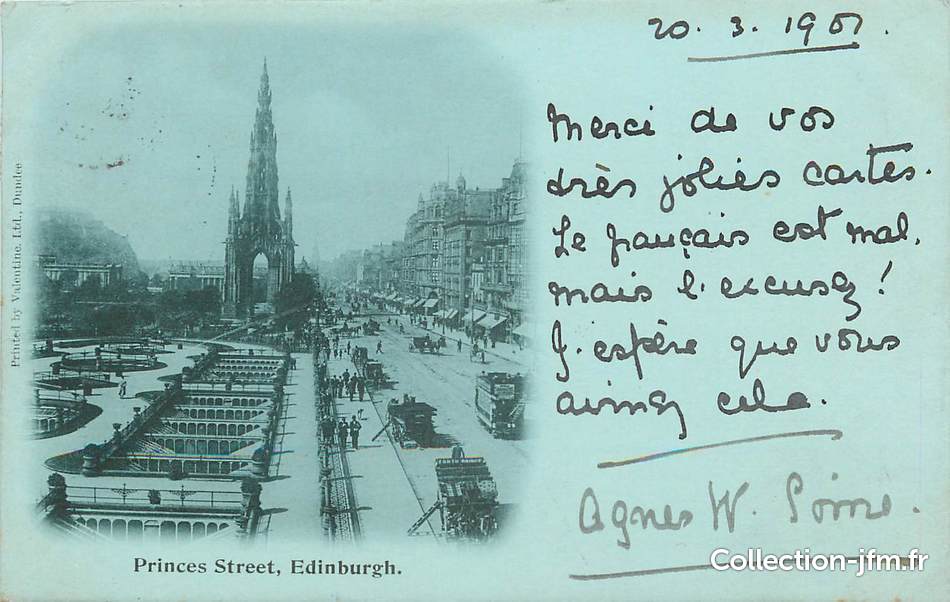 20. 3. 1901.
Merci de vos
très jolies cartes.
Le français est mal,
mais l'excusez!
J'espère que vous
aimez cela.
Agnes W.
Collection-jfm.fr
Princes Street, Edinburgh.
Printed by Valentine. Ltd., Dundee